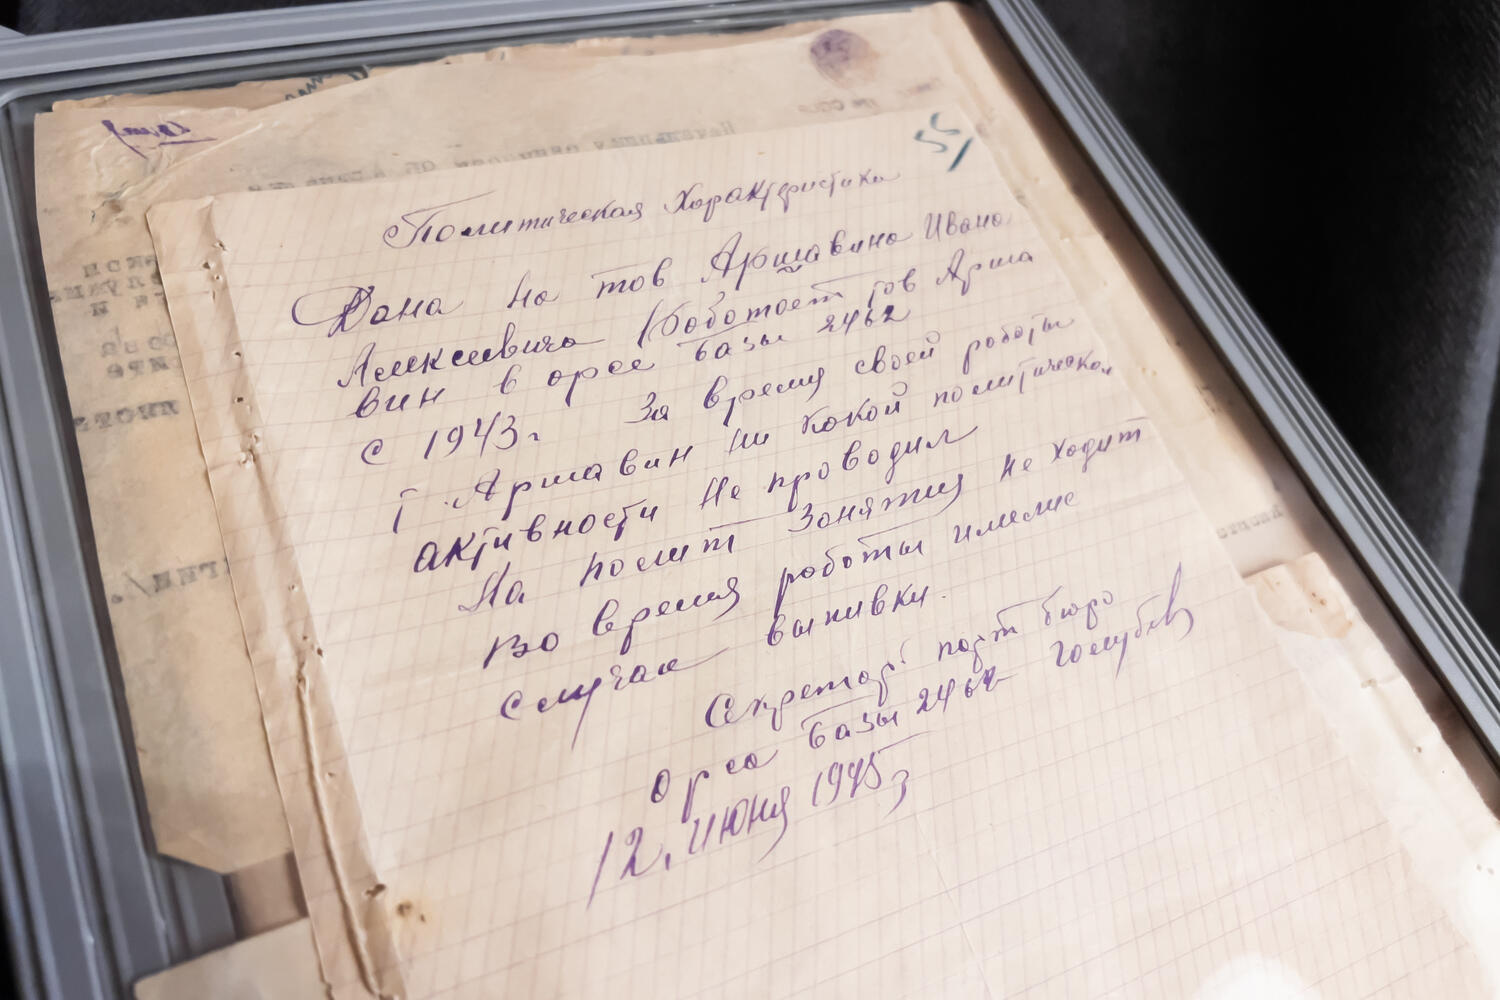 55
Политическая характеристика
Дана на тов Аршавина Ивана
Алексеевича (Работает тов Арша
вин в орсе базы 2462
с 1943г. За время своей работы
т. Аршавин ни какой политической
активности не проводил
На полит занятия не ходит
Во время работы имелис
случаи выпивки.
Секретарь парт бюро
орса базы 2462 Голубев
12. июня 1945г